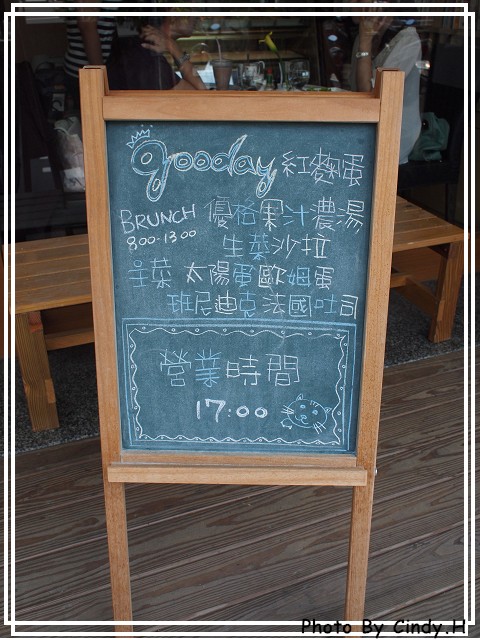 gooday 紅麴蛋
BRUNCH 優格果汁濃湯
9:00-13:00 生菜沙拉
主菜 太陽蛋歐姆蛋
班尼迪克法國吐司
營業時間
17:00
Photo By Cindy.H